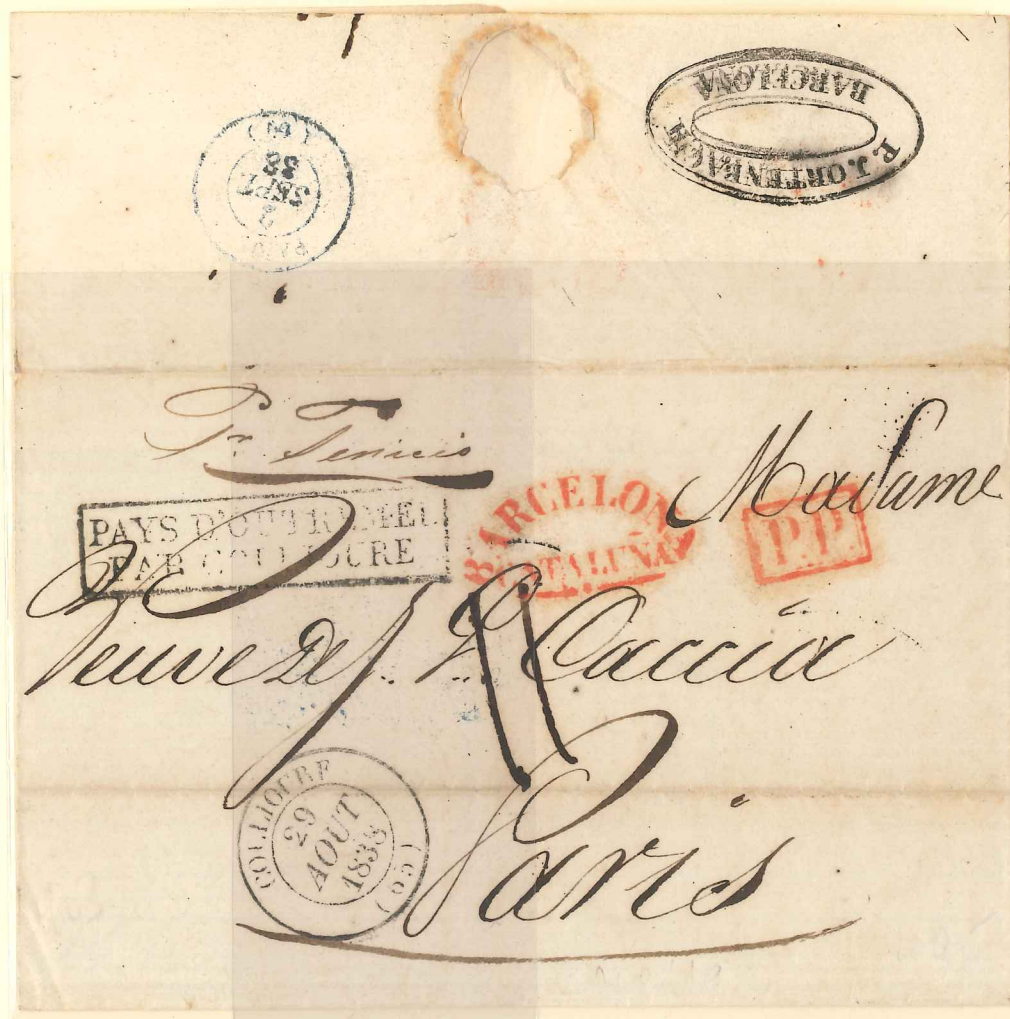 P. J. ORTENBACH
BARCELONA
SEPT
38
(60)
Pr
Madame
PAYS D'OUTREMER
PAR COLLIOURE
BARCELONA
CATALUÑA
P.P.
Veuve De J. P. Caccia
Paris
COLLIOURE
29
AOUT
1838